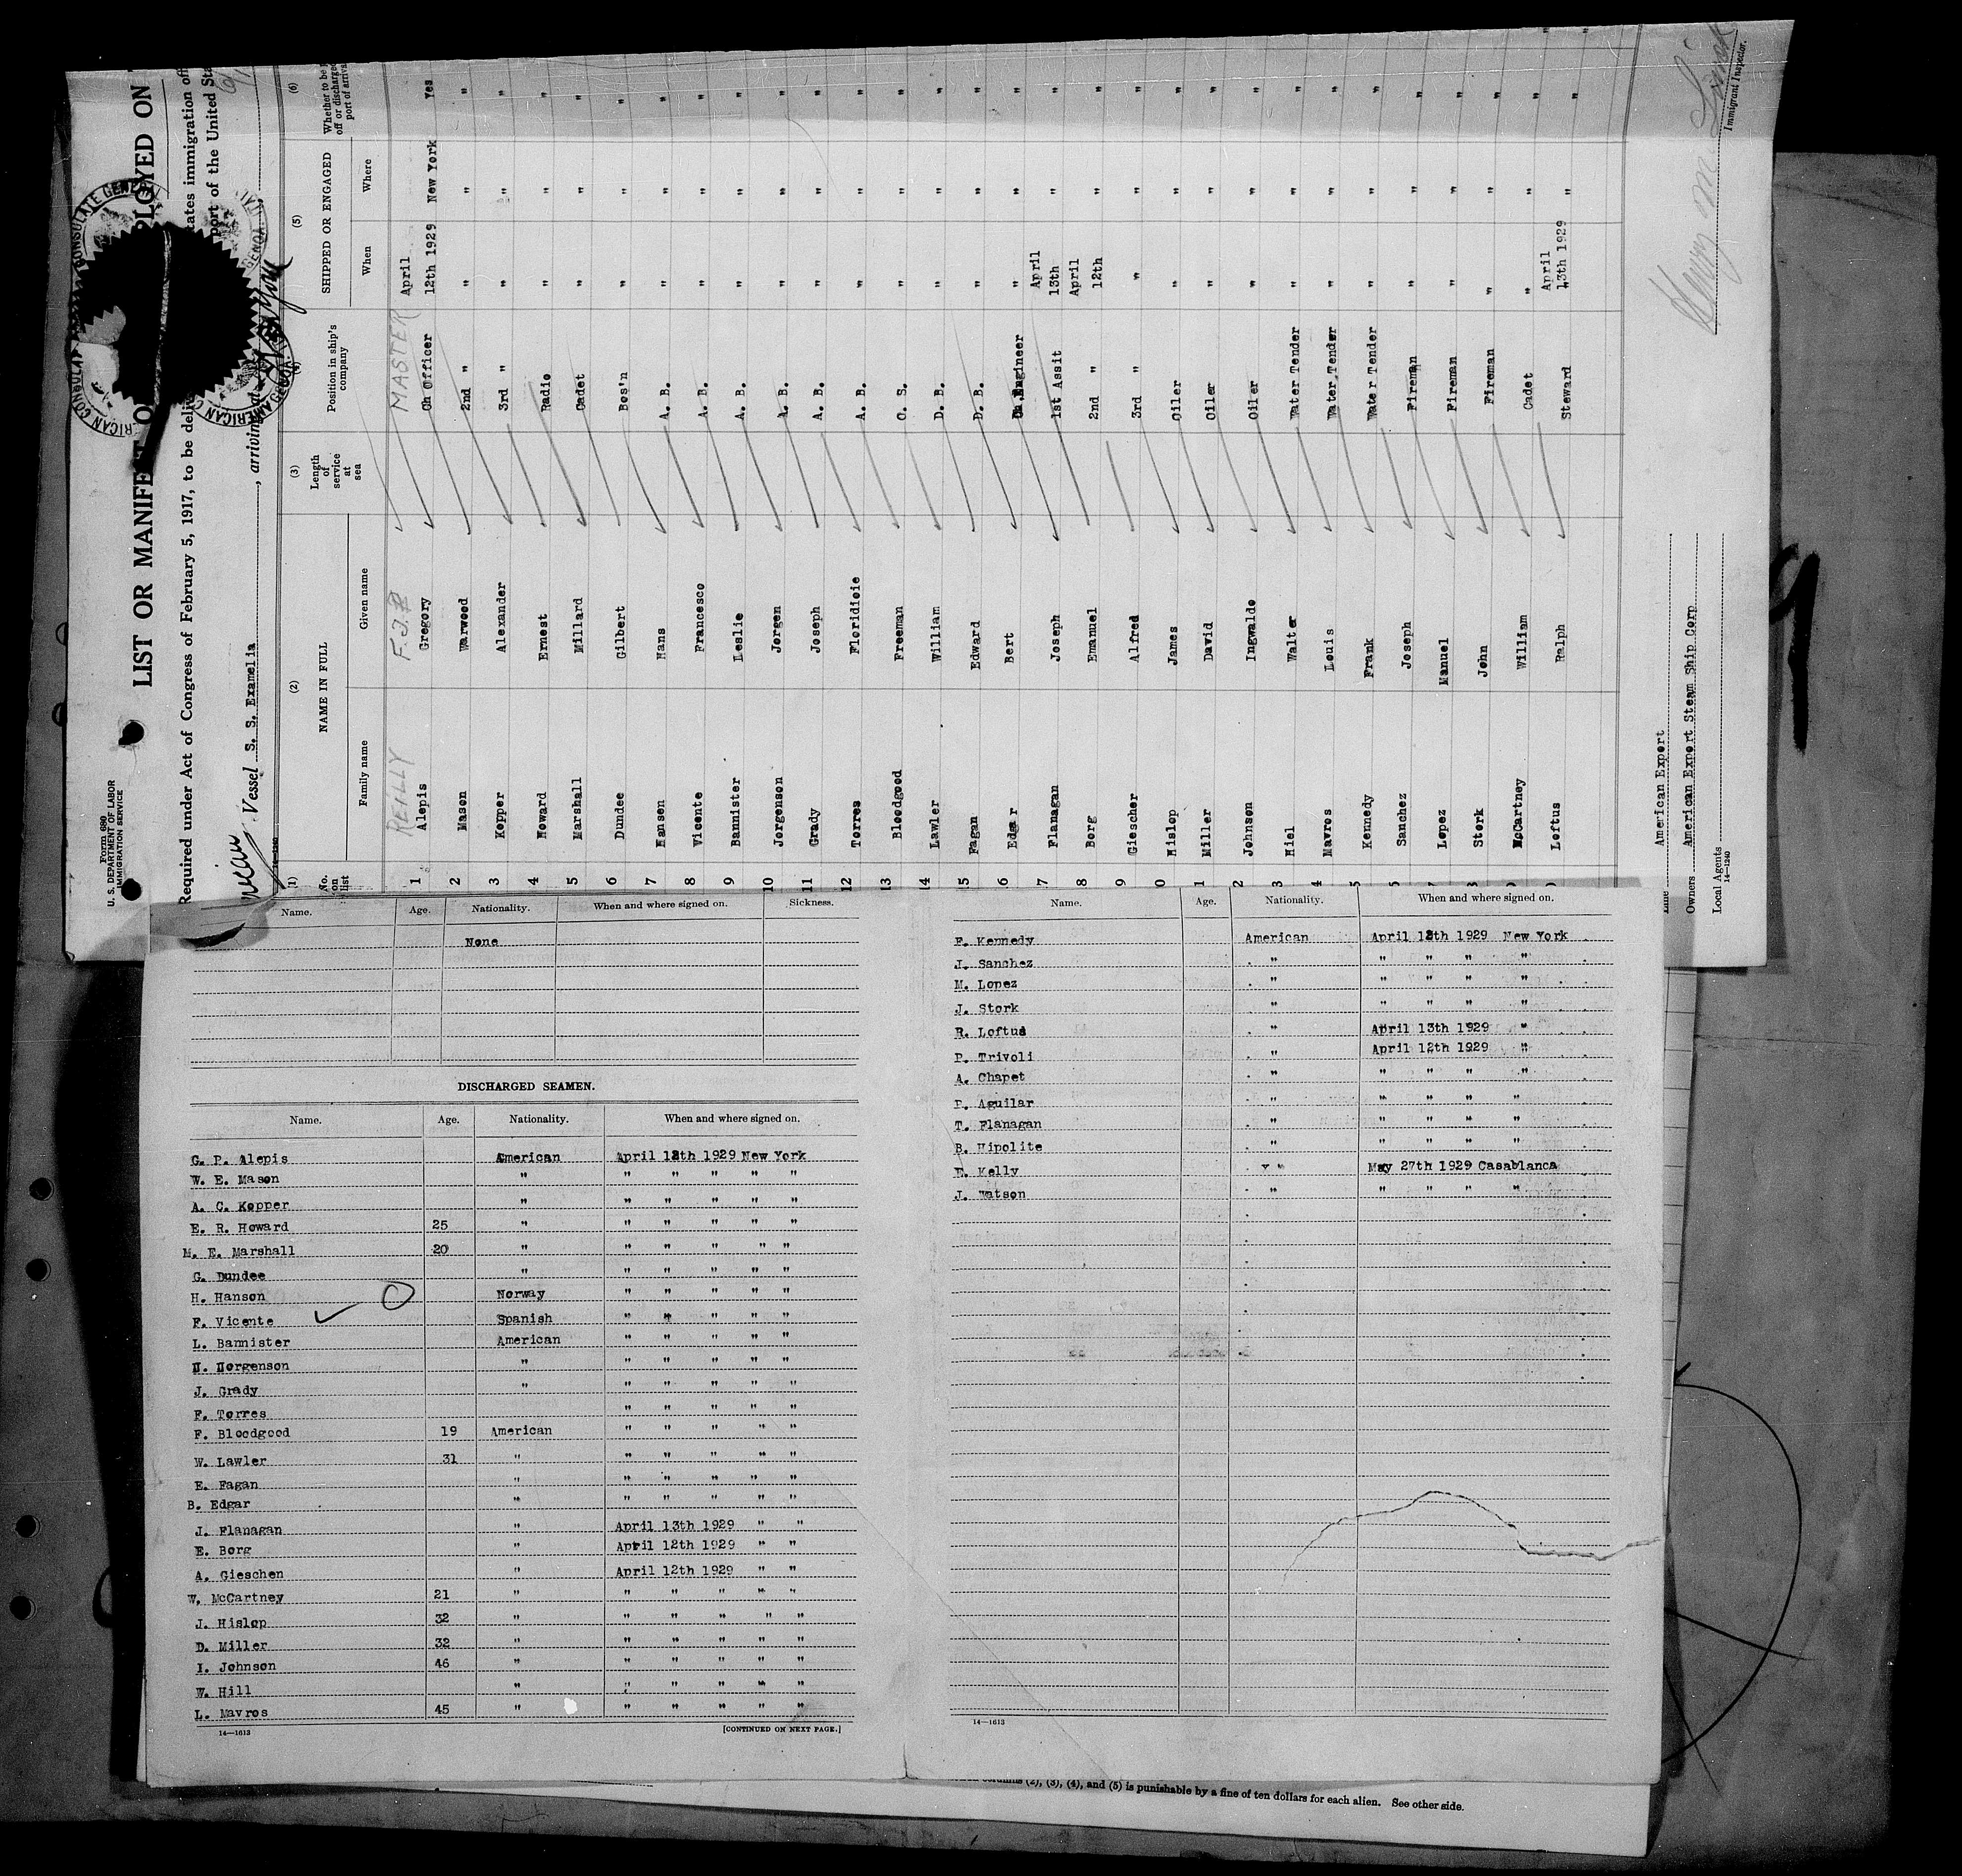 Form 680
U. S. DEPARTMENT OF LABOR
IMMIGRATION SERVICE
LIST OR MANIFE PLOYED ON
Required under Act of Congress of February 5, 1917, to be deli ates immigration of
port of the United Sta
Vessel S. S. Examelia, arriving at
AMERICAN CONSULATE GENERAL
GENOA
(1) (2) (3) (5) (6)
No. on list NAME IN FULL Length of service at sea Position in ship's company SHIPPED OR ENGAGED Whether to be off or discharged port of arriva
Family name Given name When Where
REILLY F.J. MASTER
1 Alepis Gregory Ch Officer April 12th 1929 New York Yes
2 Mason Warwood 2nd " " " "
3 Kopper Alexander 3rd " " " "
4 Howard Ernest Radio " " "
5 Marshall Millard Cadet " " "
6 Dundee Gilbert Bos'n " " "
7 Hansen Hans A. B. " " "
8 Vicente Francesco A. B. " " "
9 Bannister Leslie A. B. " " "
10 Jorgenson Jorgen A. B. " " "
11 Grady Joseph A. B. " " "
12 Torres Floridieie A. B. " " "
13 Bloodgood Freeman O. S. " " "
14 Lawler William D. B. " " "
15 Fagan Edward D. B. " " "
6 Edgar Bert Ch. Engineer " " "
7 Flanagan Joseph 1st Assit April 13th " "
8 Borg Emanuel 2nd " April 12th " "
9 Giescher Alfred 3rd " " " "
0 Hislop James Oiler " " "
1 Miller David Oiler " " "
2 Johnson Ingwalde Oiler " " "
3 Hiel Walter Water Tender " " "
4 Mavros Louis Water Tender " " "
5 Kennedy Frank Water Tender " " "
Sanchez Joseph Fireman " " "
Lopez Manuel Fireman " " "
Stork John Fireman " " "
McCartney William Cadet " " "
Loftus Ralph Steward April 13th 1929 " "
Line American Export
Owners American Export Steam Ship Corp
Local Agents
14—1240
Henry M.
Immigrant Inspector.
Name. Age. Nationality. When and where signed on. Sickness.
None
DISCHARGED SEAMEN.
Name. Age. Nationality. When and where signed on.
G. P. Alepis American April 12th 1929 New York
W. E. Mason " " " " " "
A. C. Kopper " " " " " "
E. R. Howard 25 " " " " " "
M. E. Marshall 20 " " " " " "
G. Dundee " " " " " "
H. Hanson Norway " " " " "
F. Vicente Spanish " " " " "
L. Bannister American " " " " "
Jorgenson " " " " " "
J. Grady " " " " " "
F. Torres " " " " "
F. Bloodgood 19 American " " " " "
W. Lawler 31 " " " " " "
E. Fagan " " " " " "
B. Edgar " " " " " "
J. Flanagan " April 13th 1929 " "
E. Borg " April 12th 1929 " "
A. Gieschen " April 12th 1929 " "
W. McCartney 21 " " " " " "
J. Hislop 32 " " " " " "
D. Miller 32 " " " " " "
I. Johnson 46 " " " " " "
W. Hill " " " " " "
L. Mavros 45 " " " " " "
14—1613 [CONTINUED ON NEXT PAGE.]
Name. Age. Nationality. When and where signed on.
F. Kennedy American April 12th 1929 New York
J. Sanchez " " " " "
M. Lopez " " " " "
J. Stork " " " " "
R. Loftus " April 13th 1929 "
P. Trivoli " April 12th 1929 "
A. Chapet " " " " "
P. Aguilar " " " " "
T. Flanagan " " " " "
B. Hipolite " " " " "
E. Kelly " " May 27th 1929 Casablanca
J. Watson " " " " "
14—1613
columns (2), (3), (4), and (5) is punishable by a fine of ten dollars for each alien. See other side.